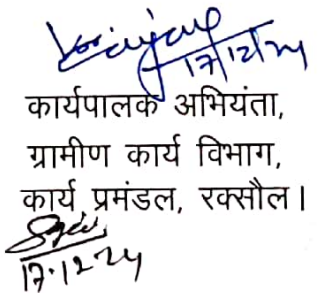 17/12/24
कार्यपालक अभियंता,
ग्रामीण कार्य विभाग,
कार्य प्रमंडल, रक्सौल।
17.12.24